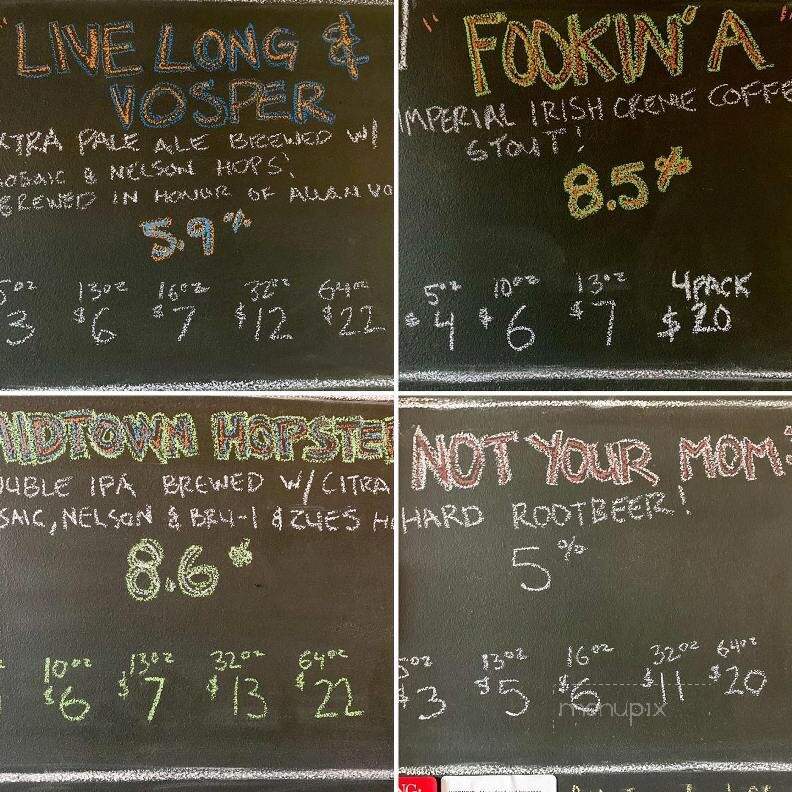 "LIVE LONG &
VOSPER
XTRA PALE ALE BREWED W/
MOSAIC & NELSON HOPS!
BREWED IN HONOR OF ALLAN VO
5.9%
5oz 13oz 16oz 32oz 64oz
3 $6 $7 $12 $22
"FOOKIN' A"
IMPERIAL IRISH CREME COFFE
STOUT!
8.5%
5oz 10oz 13oz 4PACK
$4 $6 $7 $20
MIDTOWN HOPSTE
OUBLE IPA BREWED W/ CITRA
SAIC, NELSON & BRU-1 & ZUES H
8.6%
10oz 13oz 32oz 64oz
$6 $7 $13 $22
NOT YOUR MOM'S
HARD ROOTBEER!
5%
5oz 13oz 16oz 32oz 64oz
$3 $5 $6 $11 $20
menupix